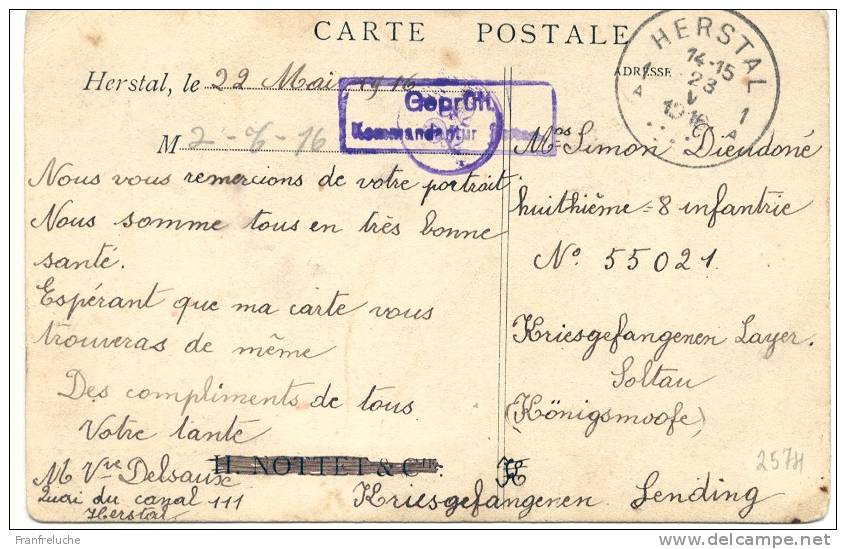 CARTE POSTALE
HERSTAL
14-15
23
V
1
A
1
A
ADRESSE
Herstal, le 22 Mai 1916
Geprüft.
Kommandantur
M 2-6-16
Nous vous remercions de votre portrait
Nous somme tous en très bonne
santé.
Espérant que ma carte vous
trouveras de même
Des compliments de tous
Votre tante
H. NOTTET & Cie
M Vve Delsaux
Quai du canal 111
Herstal
Mos Simon Dieudoné
huithième = 8 infantrie
No. 55021.
Kriesgefangenen Layer.
Soltau
(Königsmoofe)
Kriesgefangenen Sending
2574
Franfreluche
www.delcampe.net